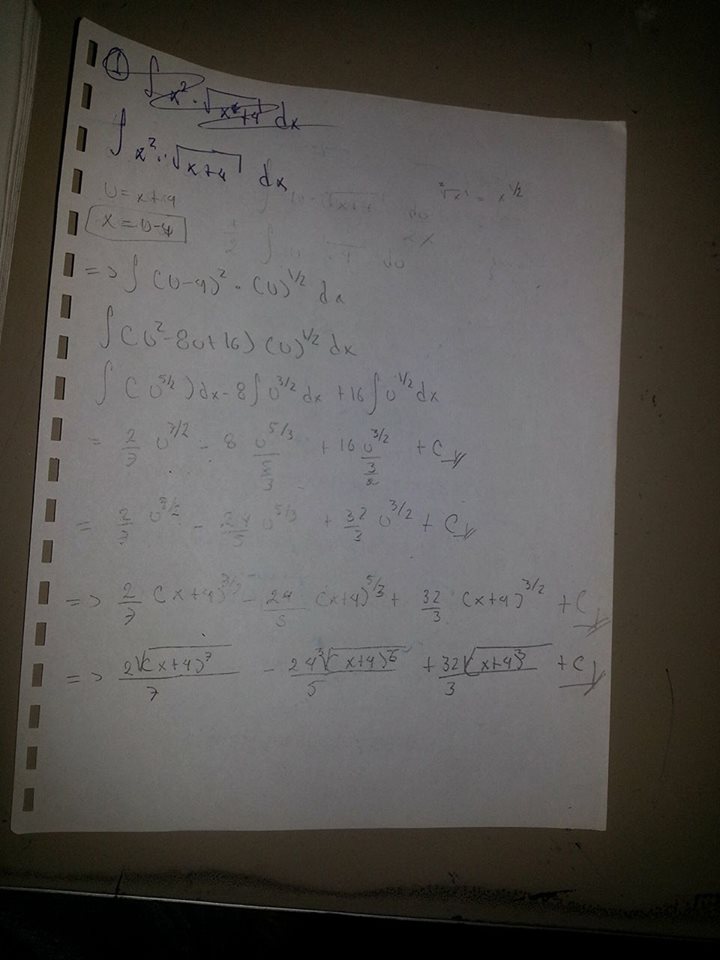 ① ∫ x² · √(x²+4) dx
∫ x² · √(x+4) dx
u = x+4
²√x¹ = x^1/2
x = u-4
=> ∫ (u-4)² · (u)^1/2 dx
∫ (u² - 8u + 16) (u)^1/2 dx
∫ (u^5/2) dx - 8 ∫ u^3/2 dx + 16 ∫ u^1/2 dx
= 2/7 u^7/2 - 8 u^5/3 / (5/3) + 16 u^3/2 / (3/2) + C
= 2/7 u^7/2 - 24/5 u^5/3 + 32/3 u^3/2 + C
=> 2/7 (x+4) - 24/5 (x+4)^5/3 + 32/3 (x+4)^3/2 + C
=> 2√(x+4)⁷ / 7 - 24 ³√(x+4)⁵ / 5 + 32√(x+4)³ / 3 + C